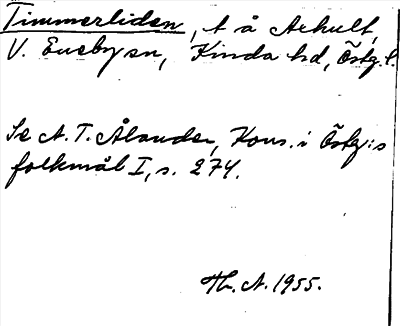 Timmerliden, t å Arhult,
V. Eneby sn, Kinda hd, Östg. l.
Se A. T. Ålander, Kons. i Östg:s
folkmål I, s. 274.
Th. A. 1955.